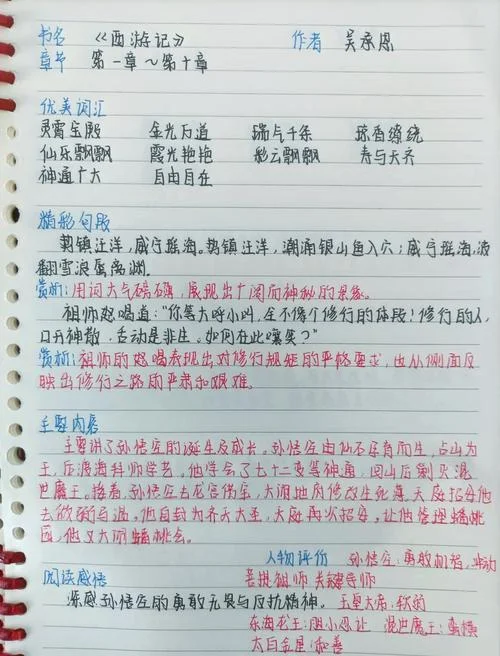 书名 《西游记》 作者 吴承恩
章节 第一章~第十章
优美词汇
灵霄宝殿 金光万道 瑞气千条 琼香缭绕
仙乐飘飘 霞光艳艳 彩云飘飘 寿与天齐
神通广大 自由自在
精彩句段
势镇汪洋,威宁瑶海。势镇汪洋,潮涌银山鱼入穴;威宁瑶海,波
翻雪浪蜃离渊。
赏析:用词大气磅礴,展现出广阔而神秘的景象。
祖师怒喝道:"你等大呼小叫,全不像个修行的体段!修行的人,
口开神散,舌动是非生。如何在此嚷笑?"
赏析:祖师的怒喝表现出对修行规矩的严格要求,也从侧面反
映出修行之路的严肃和艰难。
主要内容
主要讲了孙悟空的诞生及成长。孙悟空由仙石孕育而生,占山为
王,后渡海拜师学艺。他学会了七十二变等神通,回山后剿灭混
世魔王。接着,孙悟空去龙宫借宝,大闹地府修改生死簿,天庭招安他
去做弼马温,他自封为齐天大圣,天庭再次招安,让他管理蟠桃
园,他又大闹蟠桃会。
人物评价 孙悟空:勇敢机智,
阅读感悟 菩提祖师 关键导师
深感孙悟空的勇敢无畏与反抗精神。 玉皇大帝:软弱
东海龙王:胆小忍让 混世魔王:蛮横
太白金星:和善